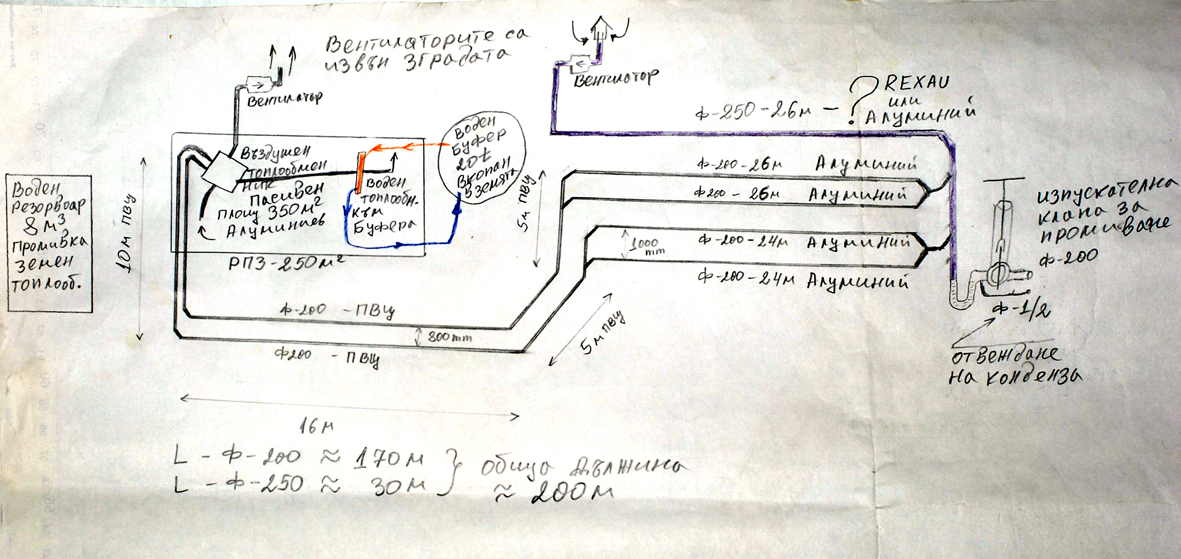 Вентилаторите са
извън зградата
Вентилатор
Вентилатор
REXAU
или
Алуминий
Ф-250-26м - ?
Въздушен
топлообмен
ник
Пасивен
Площ 350м²
Алуминиев
Воден
топлообм.
към
буфера
Воден
Буфер
20t
Вкопан
в земята
РПЗ-250м²
Воден
Резорвоар
8 м³
Промивка
земен
топлооб.
10м ПВЦ
5м ПВЦ
Ф-200-26м Алуминий
Ф200-26м Алуминий
1000
mm
Ф-200-24м Алуминий
Ф-200-24м Алуминий
изпускателна
клапа за
промиване
Ф-200
Ф-1/2
отвеждане
на конденза
Ф-200 - ПВЦ
800mm
Ф200 - ПВЦ
5м ПВЦ
16м
L - Ф-200 ≈ 170м } обща дължина
L - Ф-250 ≈ 30м } ≈ 200м